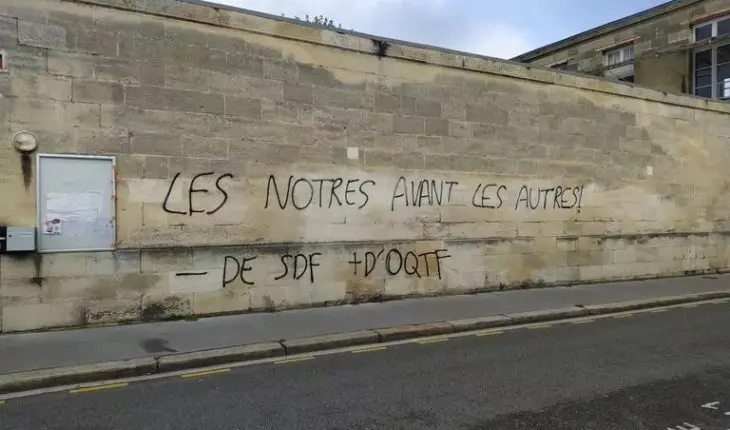 LES NOTRES AVANT LES AUTRES!
- DE SDF + D'OQTF